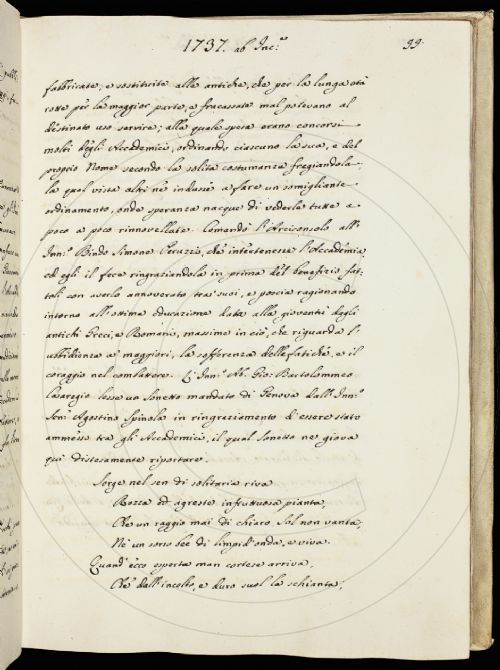 1737. ab Inc.e 99.
fabbricate, e sostituite alle antiche, che per la lunga età
rotte per la maggior parte, e fracassate mal potevano al
destinato uso servire; alla quale spesa erano concorsi
molti degli Accademici, ordinando ciascuno la sua, e del
proprio Nome secondo la solita costumanza fregiandola
la qual vista altri ne indusse a fare un somigliante
ordinamento, onde speranza nacque di vederle tutte a
poco a poco rinnovellate. Comandò l'Arciconsolo all'
Inn.o Bindo Simone Peruzzi, che intertenesse l'Accademia
ed egli il fece ringraziandola in prima del benefizio fat-
toli con averlo annoverato tra' suoi, e poscia ragionando
intorno all'ottima educazione data alla gioventù dagli
antichi Greci, e Romani, massime in ciò, che riguarda l'
ubbidienza a' maggiori, la sofferenza delle fatiche, e il
coraggio nel combattere. L'Inn.o Ab. Gio: Bartolommeo
Casaregio lesse un Sonetto mandato di Genova dall'Inn.o
Sen.e Agostino Spinola in ringraziamento d'essere stato
ammesso tra gli Accademici, il qual Sonetto ne giova
qui distesamente riportare.
Sorge nel sen di solitaria riva
Rozza ed agreste infruttuosa pianta,
Che un raggio mai di chiaro Sol non vanta,
Nè un sorso bee di limpid'onda, e viva.
Quand'ecco esperta man cortese arriva,
Che dall'incolto, e duro suol la schianta,